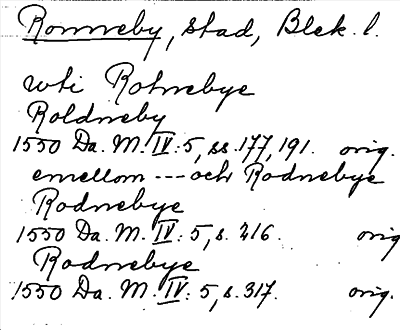 Ronneby, stad, Blek. l.
uti Rotnebye
Roldneby
1550 Da. M. IV: 5, ss. 177, 191. orig.
emellom --- och Rodnebye
Rodnebye
1550 Da. M. IV: 5, s. 216. orig
Rodnebye
1550 Da. M. IV: 5, s. 317. orig.